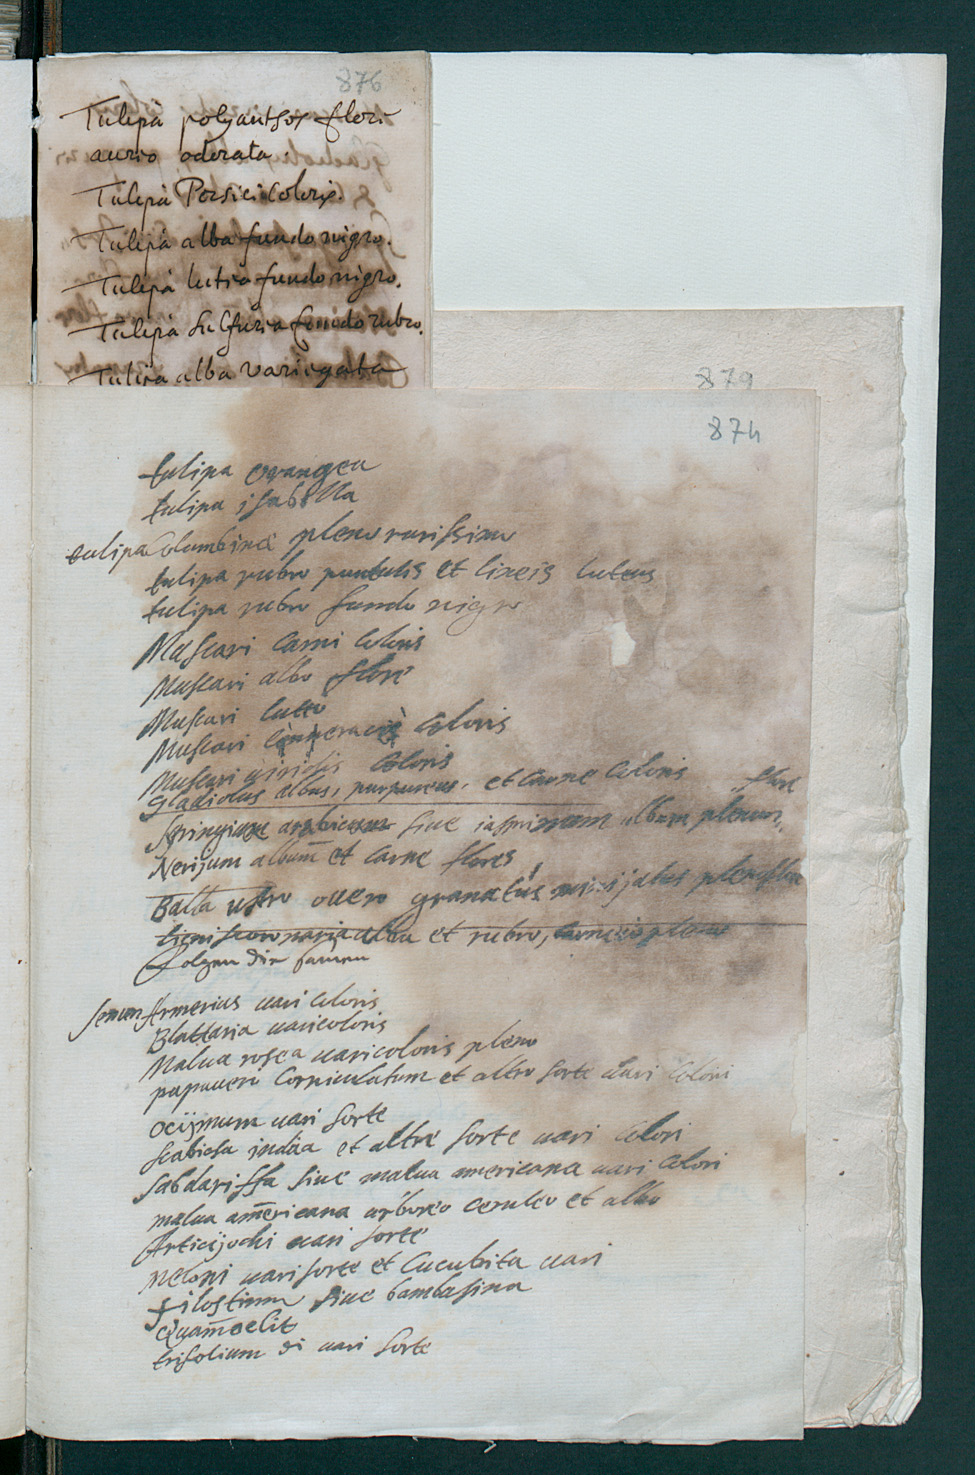 876
Tulipa polyanthos flori
aureo odorata.
Tulipa Persici coloris.
Tulipa alba fundo nigro.
Tulipa lutea fundo nigro.
Tulipa Sulfurea fundo rubro.
Tulipa alba variegata
879
874
tulipa orangea
tulipa isabella
tulipa Columbina pleno rarissimo
tulipa rubro puntulis et lineis luteus
tulipa rubro fundo nigro
Muscari carni coloris
Muscari albo flore
Muscari luteo
Muscari coloris
Muscari viridis coloris
Gladiolus albus, purpureus, et carne coloris
Siringium arabicum sive iasminum album plenum, flore
Nerijum album et carne flores
Balla ustro overo granatus pleno flore
alba et rubro,
folgen die samen
semen Armerius vari coloris
Blattaria varicoloris
Malva rosea varicoloris pleno
papaverò Corniculatum et altro sorte vari colori
Ocijmum vari sorte
Scabiosa indica et altre sorte vari colori
Sabdariffa sive malva americana vari colori
malva am̄ericana arboreo ceruleo et albo
Articijochi vari sorte
Meloni vari sorte et Cucubita vari
filostinum sive bambasina
Quam̄oclit
trifolium di vari sorte